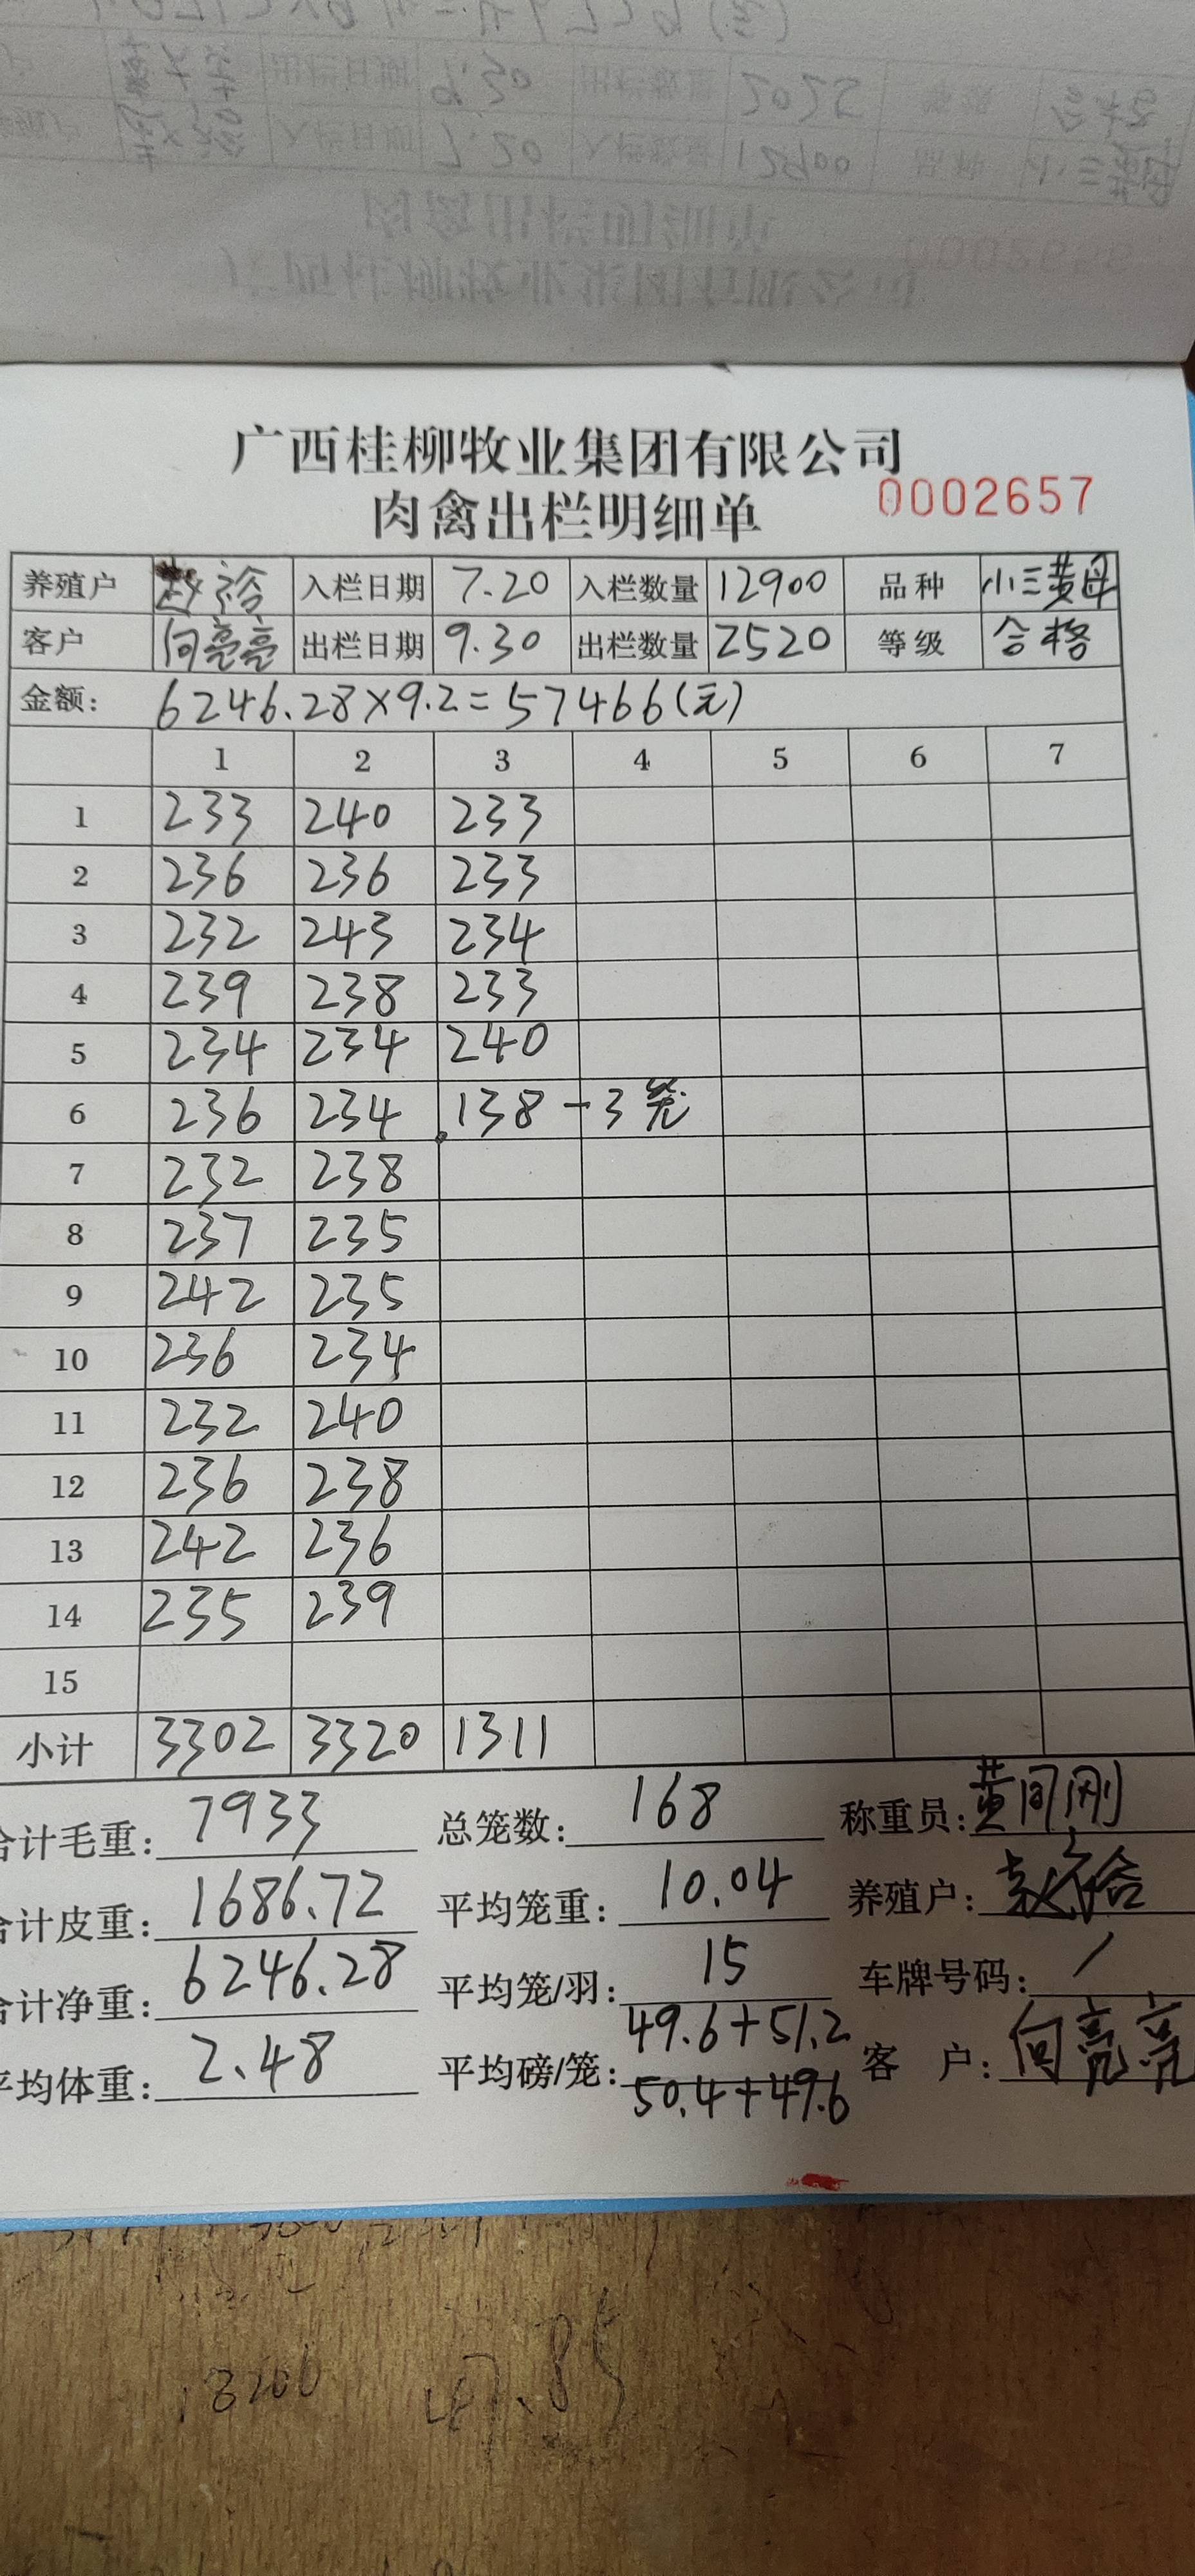 广西桂柳牧业集团有限公司
肉禽出栏明细单 0002657
养殖户 入栏日期 7.20 入栏数量 12900 品种 小三黄母
客户 向亮亮 出栏日期 9.30 出栏数量 2520 等级 合格
金额: 6246.28×9.2=57466(元)
1 2 3 4 5 6 7
1 233 240 233
2 236 236 233
3 232 243 234
4 239 238 233
5 234 234 240
6 236 234 138-3笼
7 232 238
8 237 235
9 242 235
10 236 234
11 232 240
12 236 238
13 242 236
14 235 239
15
小计 3302 3320 1311
合计毛重: 7933 总笼数: 168 称重员:
合计皮重: 1686.72 平均笼重: 10.04 养殖户:
合计净重: 6246.28 平均笼/羽: 15 车牌号码: /
平均体重: 2.48 平均磅/笼: 49.6+51.2 客户: 向亮亮
50.4+49.6
13200 47.85